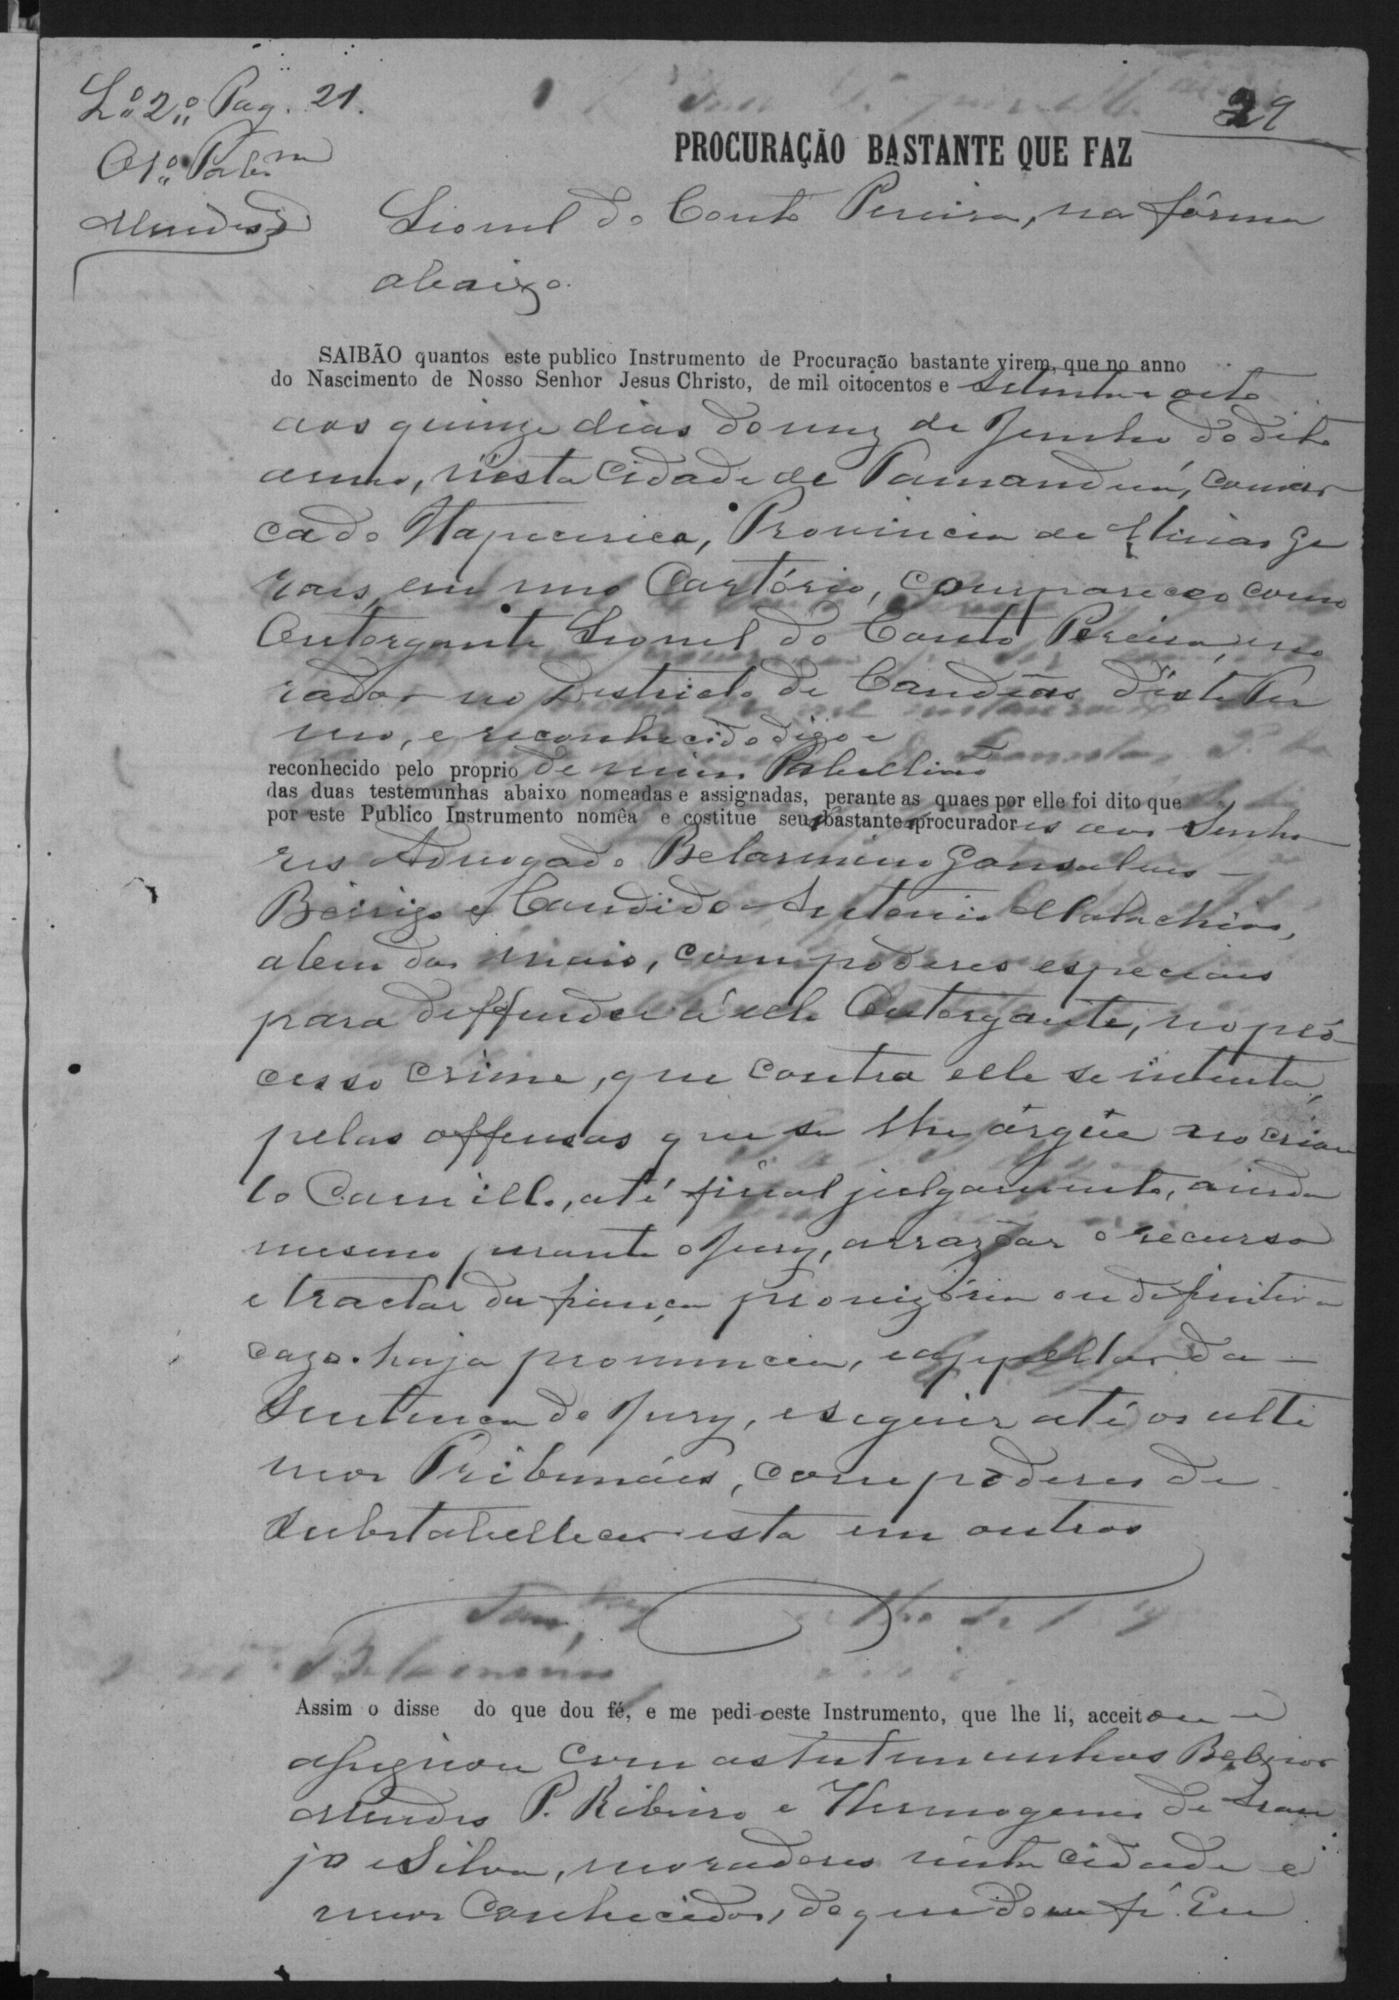 Lº 2º Pag. 21.
29
O 1º Tabam
Mendes
PROCURAÇÃO BASTANTE QUE FAZ
Lionel do Couto Pereira, na fórma
abaixo.
SAIBÃO quantos este publico Instrumento de Procuração bastante virem, que no anno
do Nascimento de Nosso Senhor Jesus Christo, de mil oitocentos e setenta e oito
aos quinze dias do mez de Junho do dito
anno, n'esta Cidade de Tamanduá, comar
ca do Itapecerica, Provincia de Minas Ge
raes, em meu Cartório, compareceo como
Outorgante Lionel do Couto Pereira, mo
rador no Districto de Candêas d'este Ter
mo, e reconhecido digo e
reconhecido pelo proprio de mim Tabellião
das duas testemunhas abaixo nomeadas e assignadas, perante as quaes por elle foi dito que
por este Publico Instrumento nomêa e costitue seus bastantes procuradores aos Senho
res Advogado Belarmino Gonsalves
Beirigo e Candido Antonio Malachias,
alem dos mais, com poderes especiaes
para deffender á elle Outorgante, no pro
cesso crime, que contra elle se intenta,
pelas offensas que se lhe argúe no criou
lo Camillo, até final julgamento, ainda
mesmo perante o Jury, arrazoar o recurso
e tractar da fiança provizória ou definitiva
cazo haja pronuncia, e appellar da
Sentença do Jury, e seguir até os ulti
mos Tribunáes, com poderes de
substabellecer esta em outros
Assim o disse do que dou fé, e me pedio este Instrumento, que lhe li, acceitou e
assignou com as testemunhas Belizor
Mendes P. Ribeiro e Hermogenes de Arau
jo e Silva, moradores nesta cidade e
meos Conhecidos, do que dou fé. Eu